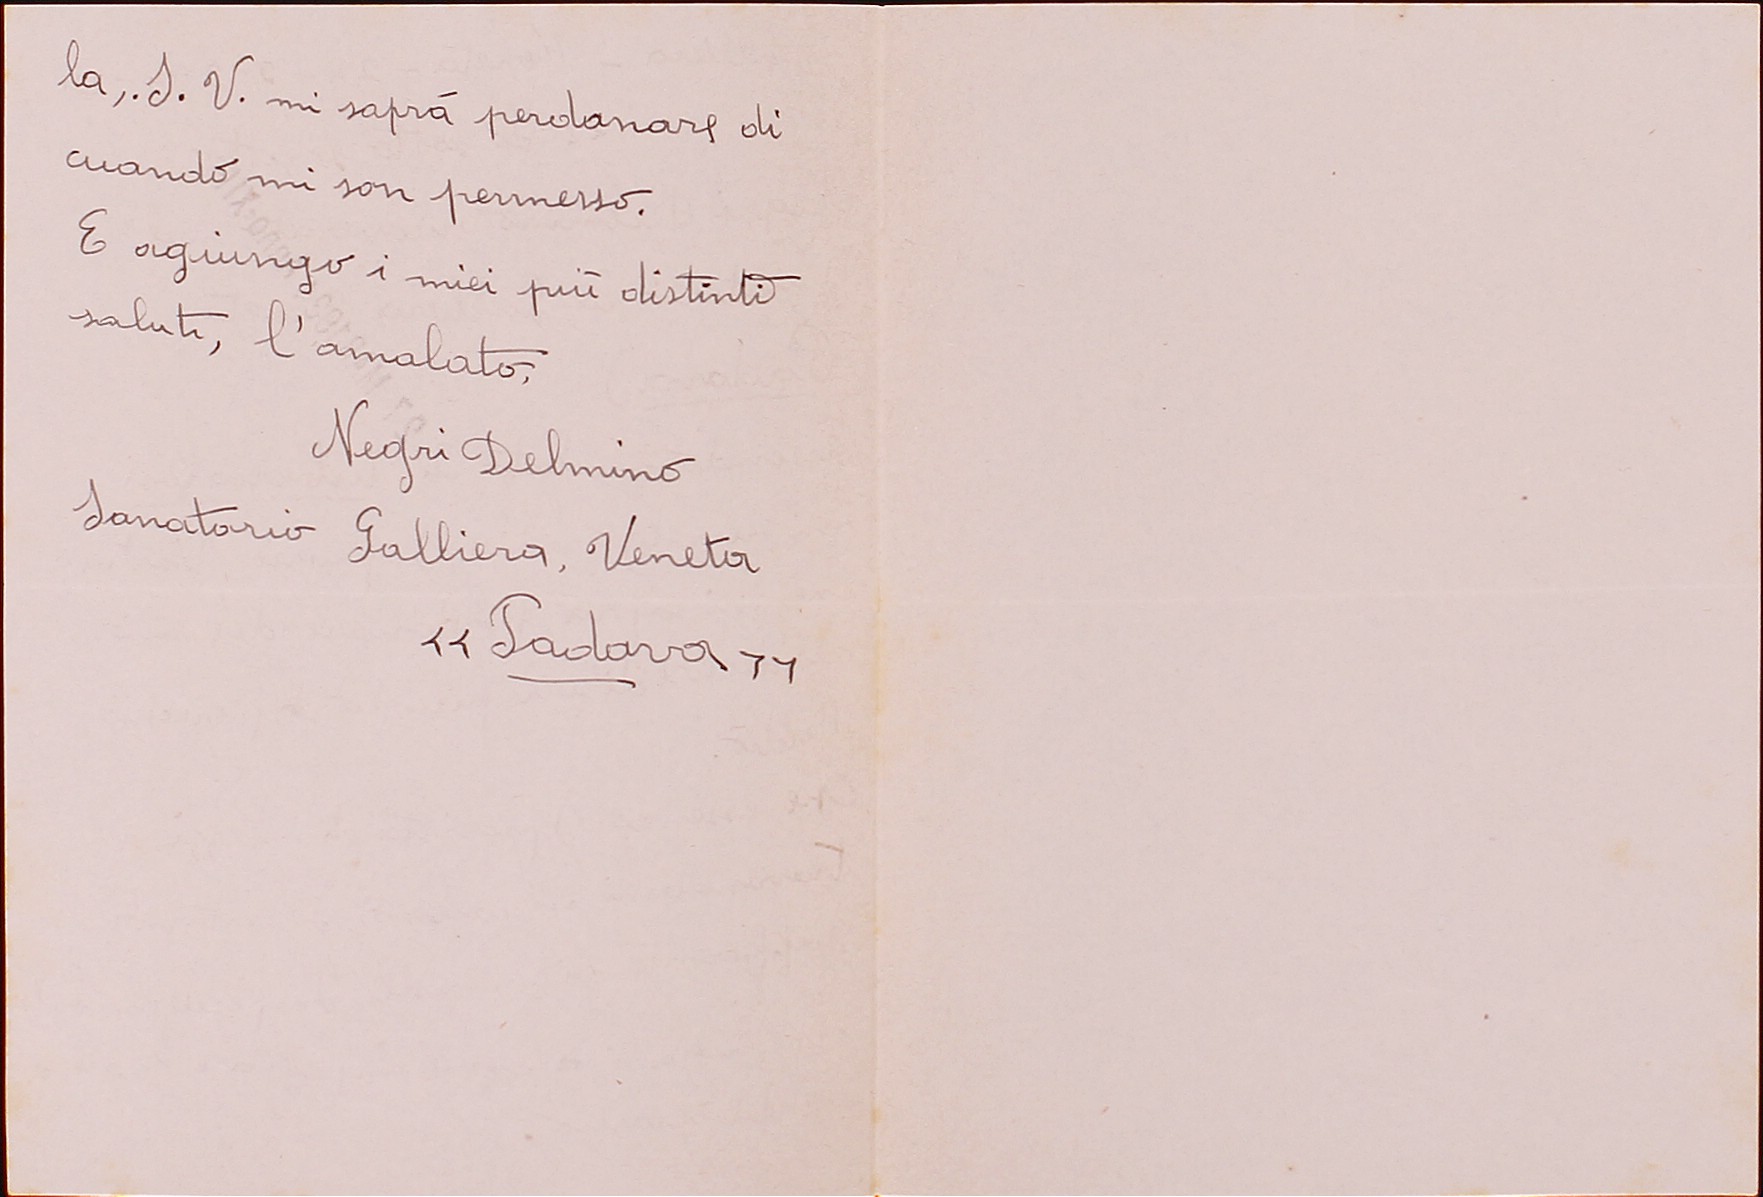 la,. S. V. mi saprá perdanare di
cuando mi son permesso.
E agiungo i miei più distinti
saluti, l'amalato,
Negri Delmino
Sanatorio Galliera, Veneta
"Padava"